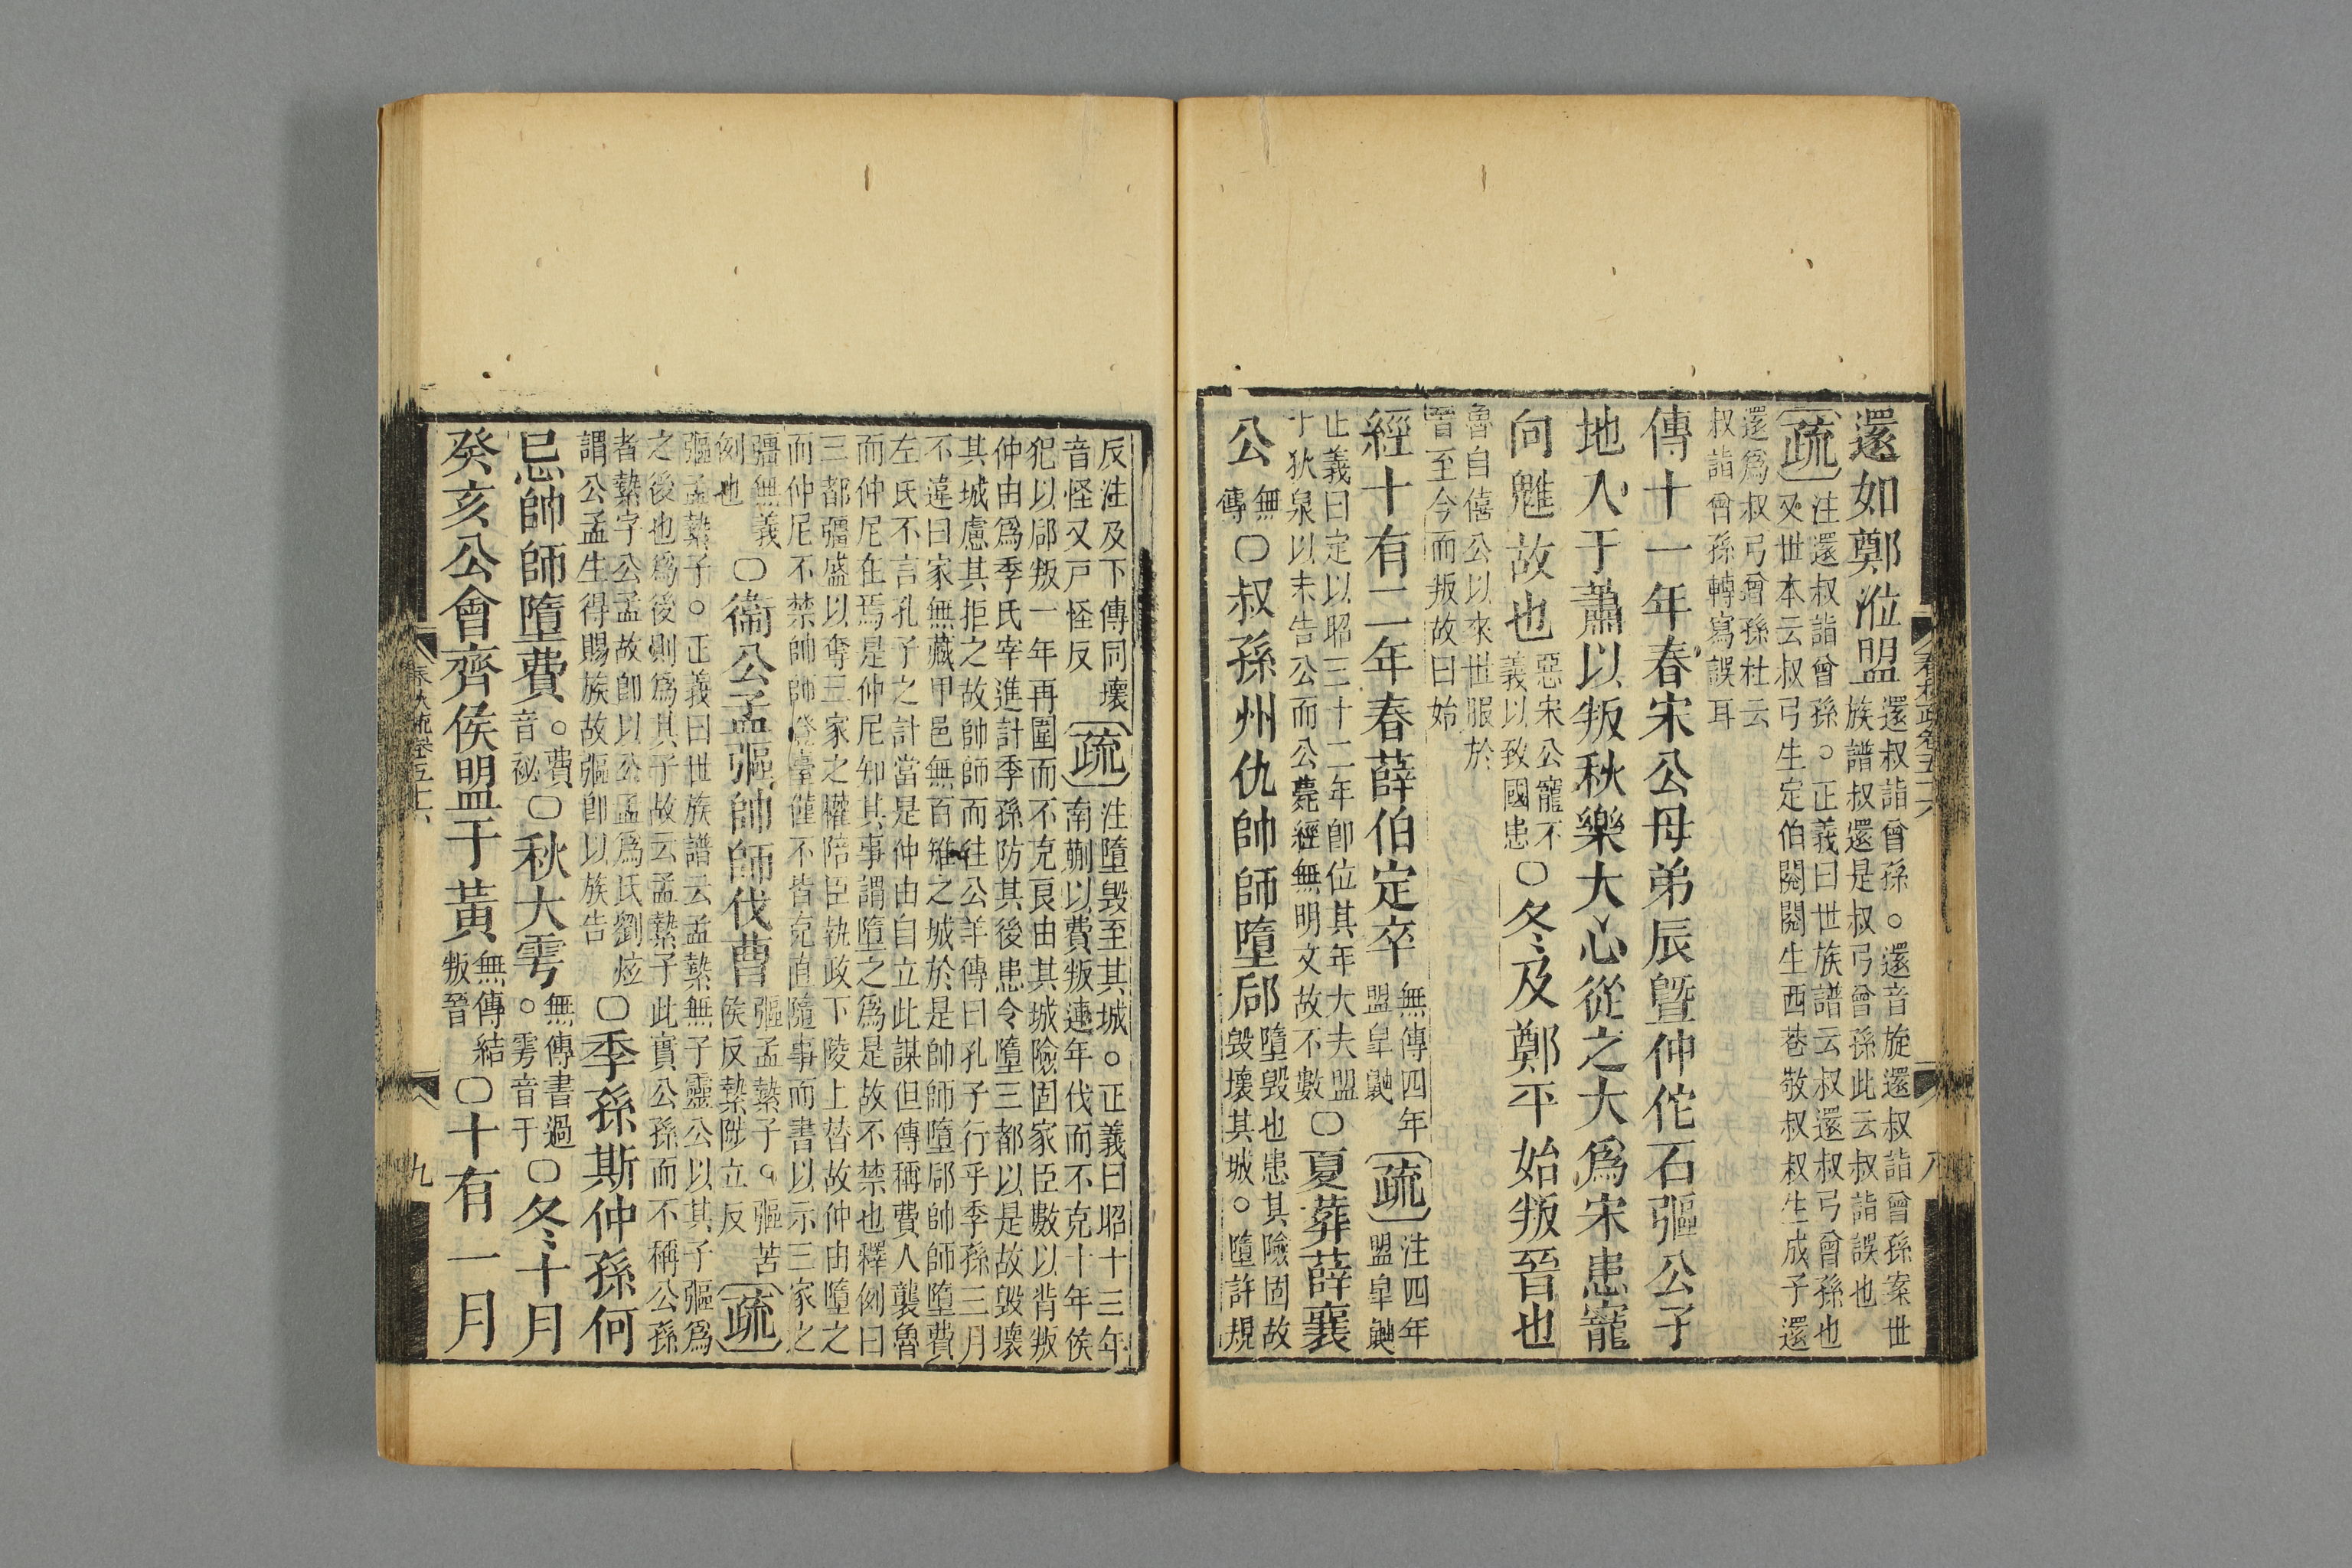 還如鄭涖盟
還叔詣曾孫。還音旋還叔詣曾孫案世
族譜叔還是叔弓曾孫此云叔詣誤也
疏
注還叔詣曾孫。正義曰世族譜云叔還叔弓曾孫也
又世本云叔弓生定伯閱閱生西巷敬叔叔生成子還
還爲叔弓曾孫杜云
叔詣曾孫轉寫誤耳
傳十一年春宋公母弟辰曁仲佗石彄公子
地入于蕭以叛秋樂大心從之大爲宋患寵
向魋故也
惡宋公寵不
義以致國患
〇冬及鄭平始叛晉也
魯自僖公以來世服於
晉至今而叛故曰始
經十有二年春薛伯定卒
無傳四年
盟皐鼬
疏
注四年
盟皐鼬
正義曰定以昭三十二年卽位其年大夫盟
于狄泉以未告公而公薨經無明文故不數
〇夏葬薛襄
公
無
傳
〇叔孫州仇帥師墮郈
墮毀也患其險固故
毀壞其城。墮許規
反注及下傳同壞
音怪又戸怪反
疏
注墮毀至其城。正義曰昭十三年
南蒯以費叛連年伐而不克十年侯
犯以郈叛一年再圍而不克良由其城險固家臣數以背叛
仲由爲季氏宰進計季孫防其後患令墮三都以是故毀壞
其城慮其拒之故帥師而往公羊傳曰孔子行乎季孫三月
不違曰家無藏甲邑無百雉之城於是帥師墮郈帥師墮費
左氏不言孔子之計當是仲由自立此謀但傳稱費人襲魯
而仲尼在焉是仲尼知其事謂墮之爲是故不禁也釋例曰
三都彊盛以奪三家之權陪臣執政下陵上替故仲由墮之
而仲尼不禁帥師登臺僅不皆克直隨事而書以示三家之
彊無義
例也
〇衞公孟彄帥師伐曹
彄孟縶子。彄苦
侯反縶陟立反
疏
彄孟縶子。正義曰世族譜云孟縶無子靈公以其子彄爲
之後也爲後則爲其子故云孟縶子此實公孫而不稱公孫
者縶字公孟故卽以公孟爲氏劉炫
謂公孟生得賜族故彄卽以族告
〇季孫斯仲孫何
忌帥師墮費
。費
音祕
〇秋大雩
無傳書過
。雩音于
〇冬十月
癸亥公會齊侯盟于黃
無傳結
叛晉
〇十有一月
春秋疏卷五十六
九